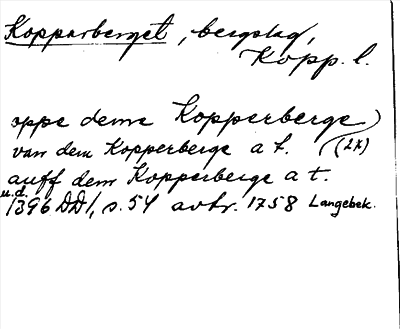 Kopparberget, bergslag,
Kopp. l.
oppe deme Kopperberge)
van dem Kopperberge a t. (2x)
auff dem Kopperberge a t.
u.d.
/1396 DD/, s. 54 avkr. 1758 Langebek.